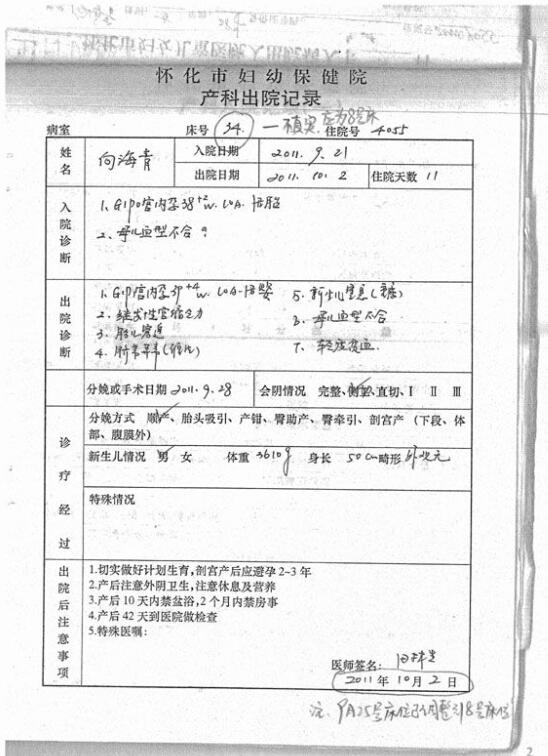 怀化市妇幼保健院
产科出院记录
病室 床号 34. 一 应为8号床 住院号 4055
姓名 向海青 入院日期 2011.9.21
出院日期 2011.10.2 住院天数 11
入院诊断
1、G1P0宫内孕38+2w. LOA 活胎
2、母儿血型不合?
出院诊断
1、G1P1宫内孕39+4w. LOA-活婴 5、新生儿窒息
2、继发性宫缩乏力 6、母儿血型不合
3、胎儿窘迫 7、轻度贫血
4、脐带异常
分娩或手术日期 2011.9.28 会阴情况 完整、侧切、直切、Ⅰ Ⅱ Ⅲ
诊疗经过
分娩方式 顺产、胎头吸引、产钳、臀助产、臀牵引、剖宫产(下段、体部、腹膜外)
新生儿情况 男 女 体重 3610g 身长 50cm 畸形 外观无
特殊情况
出院后注意事项
1.切实做好计划生育,剖宫产后应避孕2~3年
2.产后注意外阴卫生,注意休息及营养
3.产后10天内禁盆浴,2个月内禁房事
4.产后42天到医院做检查
5.特殊医嘱:
医师签名:
2011年10月2日
注: 号床位已调整到8号床位
2